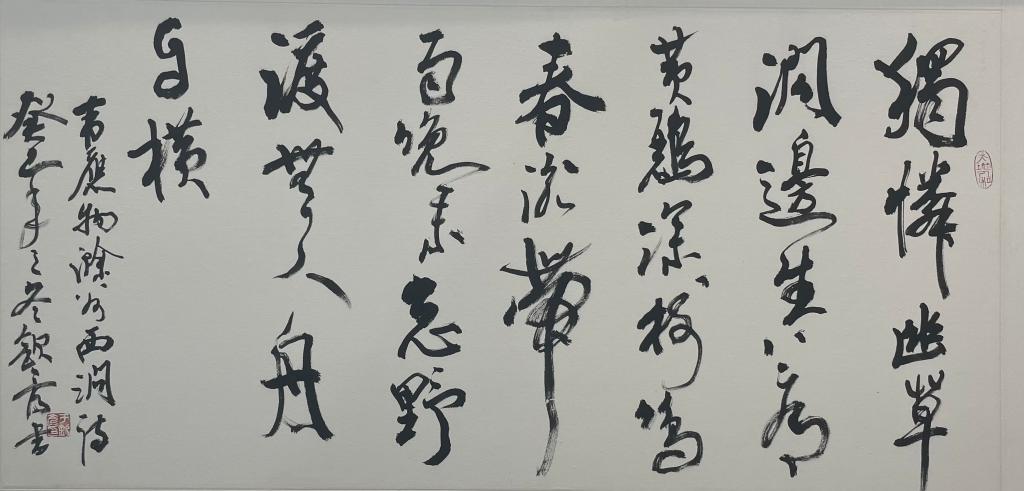 獨憐幽草
澗邊生上有
黄鸝深樹鳴
春潮帶
雨晚來急野
渡無人舟
自橫
韋應物滁州西澗詩
癸巳年之冬欽書